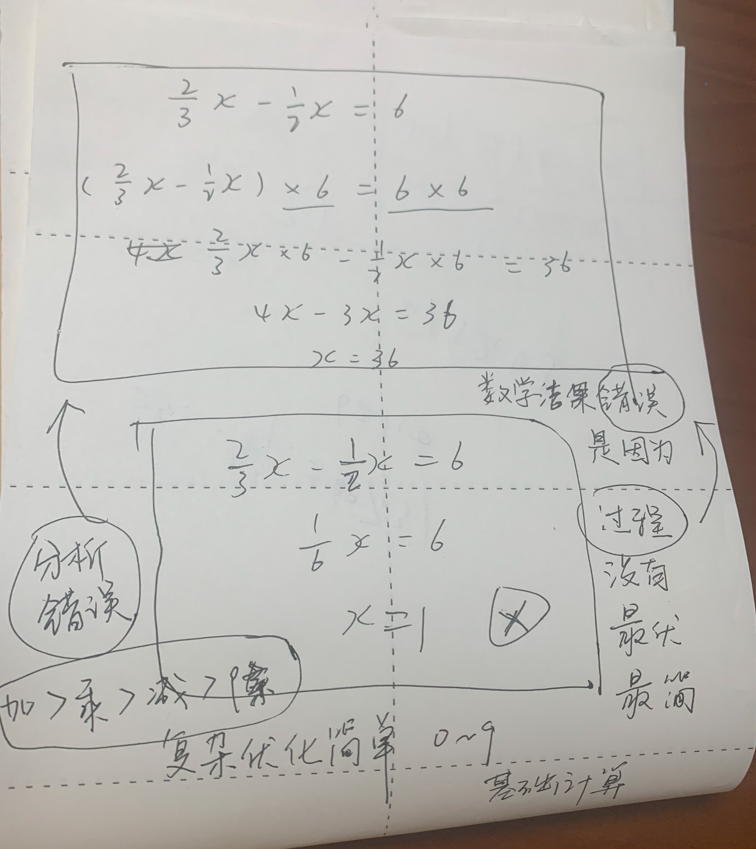 2/3 x - 1/2 x = 6
(2/3 x - 1/2 x) × 6 = 6 × 6
4x 2/3 x × 6 - 1/2 x × 6 = 36
4x - 3x = 36
x = 36
数学结果错误
是因为
过程
没有
最优
最简
2/3 x - 1/2 x = 6
1/6 x = 6
x = 1 ×
分析
错误
加 > 乘 > 减 > 除
复杂优化简单 0~9
基础计算